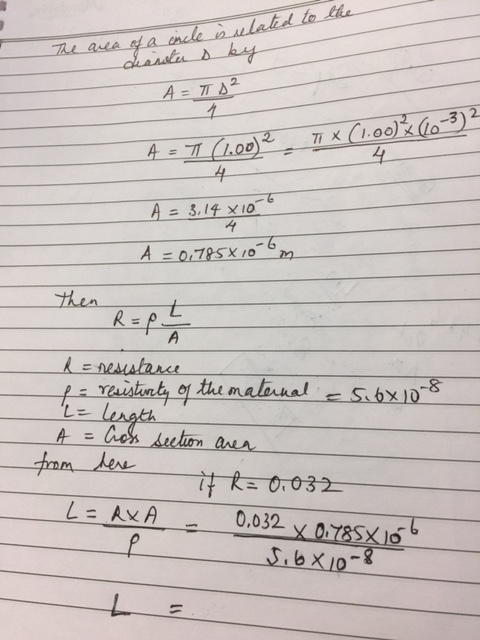 The area of a circle is related to the
diameter D by
A = π D²/4
A = π (1.00)²/4 = π × (1.00)² × (10⁻³)²/4
A = 3.14 × 10⁻⁶/4
A = 0.785 × 10⁻⁶ m
Then
R = ρ L/A
R = resistance
ρ = resistivity of the maternal = 5.6 × 10⁻⁸
L = Length
A = Cross section area
from here
if R = 0.032
L = R × A/ρ = 0.032 × 0.785 × 10⁻⁶/5.6 × 10⁻⁸
L =